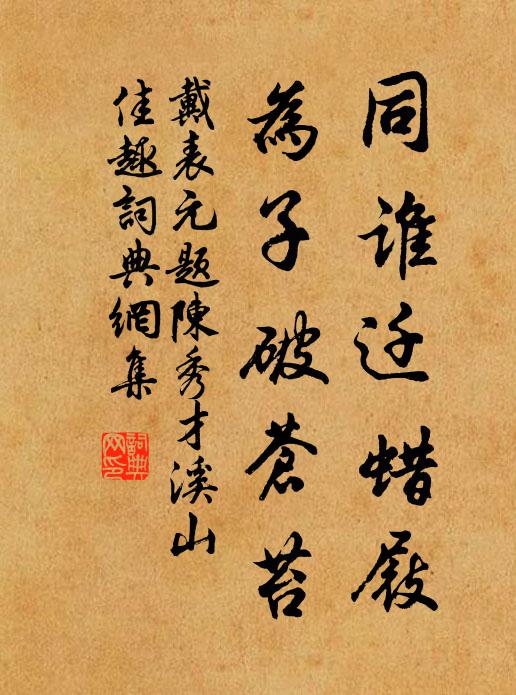 同誰迁蜡屐
為子破蒼苔
戴表元题陳秀才溪山
佳趣詞典網集
詞典网印